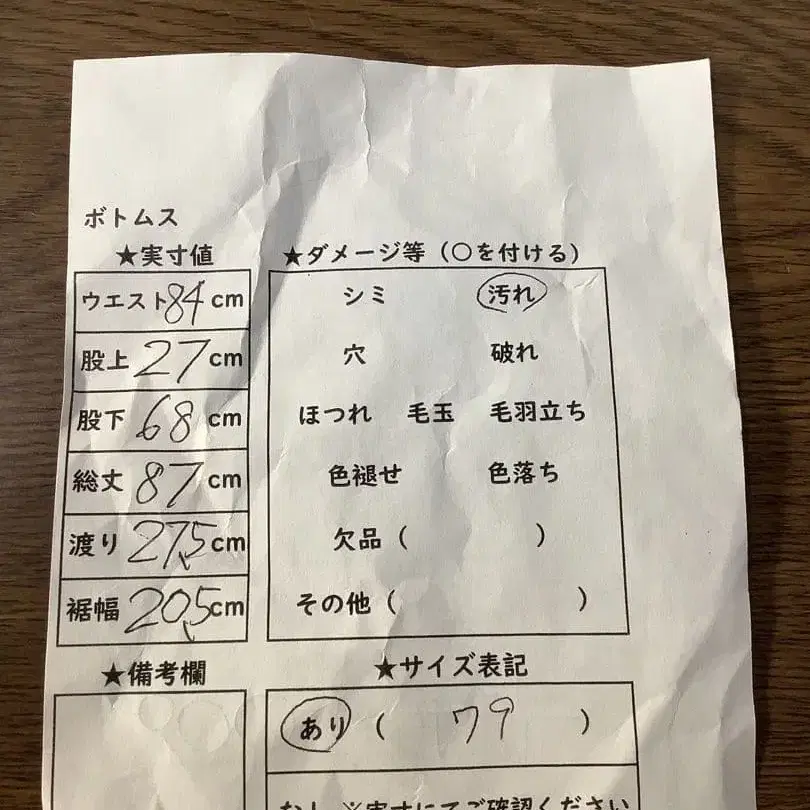 ボトムス
★実寸値
ウエスト84cm
股上27cm
股下68cm
総丈87cm
渡り27.5cm
裾幅20.5cm
★ダメージ等（○を付ける）
シミ 汚れ
穴 破れ
ほつれ 毛玉 毛羽立ち
色褪せ 色落ち
欠品（ ）
その他（ ）
★備考欄
★サイズ表記
あり（ 79 ）
なし ※実寸にてご確認ください